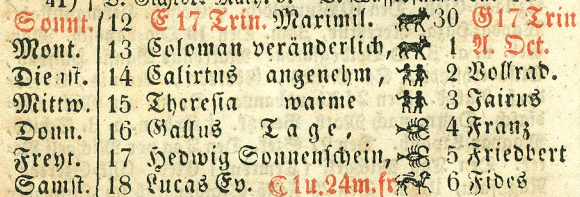 Sonnt. 12 E 17 Trin. Maximil. 30 G17 Trin
Mont. 13 Coloman veränderlich, 1 A. Oct.
Dienst. 14 Calixtus angenehm, 2 Vollrad.
Mittw. 15 Theresia warme 3 Jairus
Donn. 16 Gallus Tage, 4 Franz
Freyt. 17 Hedwig Sonnenschein, 5 Friedbert
Samst. 18 Lucas Ev. ☾1u.24m.fr 6 Fides